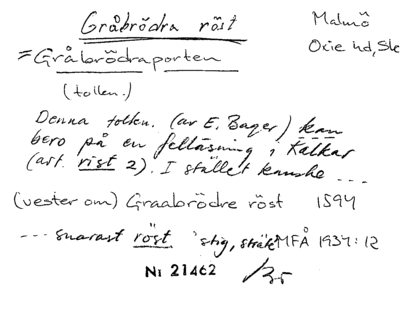 Gråbrödra röst
Malmö
Oxie hd, Sk
= Gråbrödraporten
(tolkn.)
Denna tolkn. (av E. Bager) kan
bero på en felläsning i Kalkar
(art. rist 2). I stället kanske ---
(vester om) Graabrödre röst 1594
--- snarast röst 'stig, sträk MFÅ 1934:12
Nr 21462